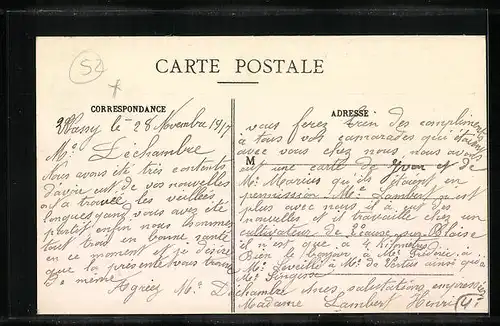 52
CARTE POSTALE
CORRESPONDANCE
ADRESSE
M
Wassy le 28 Novembre 1917
Mr Déchambre
Nous avons été très contents
d'avoir eut de vos nouvelles
on a trouvé les veillées
longues quand vous avez été
partit enfin nous sommes
tout trou en bonne santé
en ce moment et je désire
que la présente vous trouve
de même.
Agréez Mr Déchambre nos salutations empressées
Madame Lambert Henri
vous ferez bien des compliments
à tous vos camarades qui étaient
avec vous chez nous nous avons
eut une carte de Yvon et de
Mr Marius qu'ils étaient en
permission Mr Lambert n'est
plus avec nous, il a eut des
nouvelles et il travaille chez un
cultivateur de sur Blaise
il n'est que à 4 kilomètres
Bien le bonjour à Mr Frédéric à
Mr Léveillé à Mr de Vertus ainsi que à
Mr